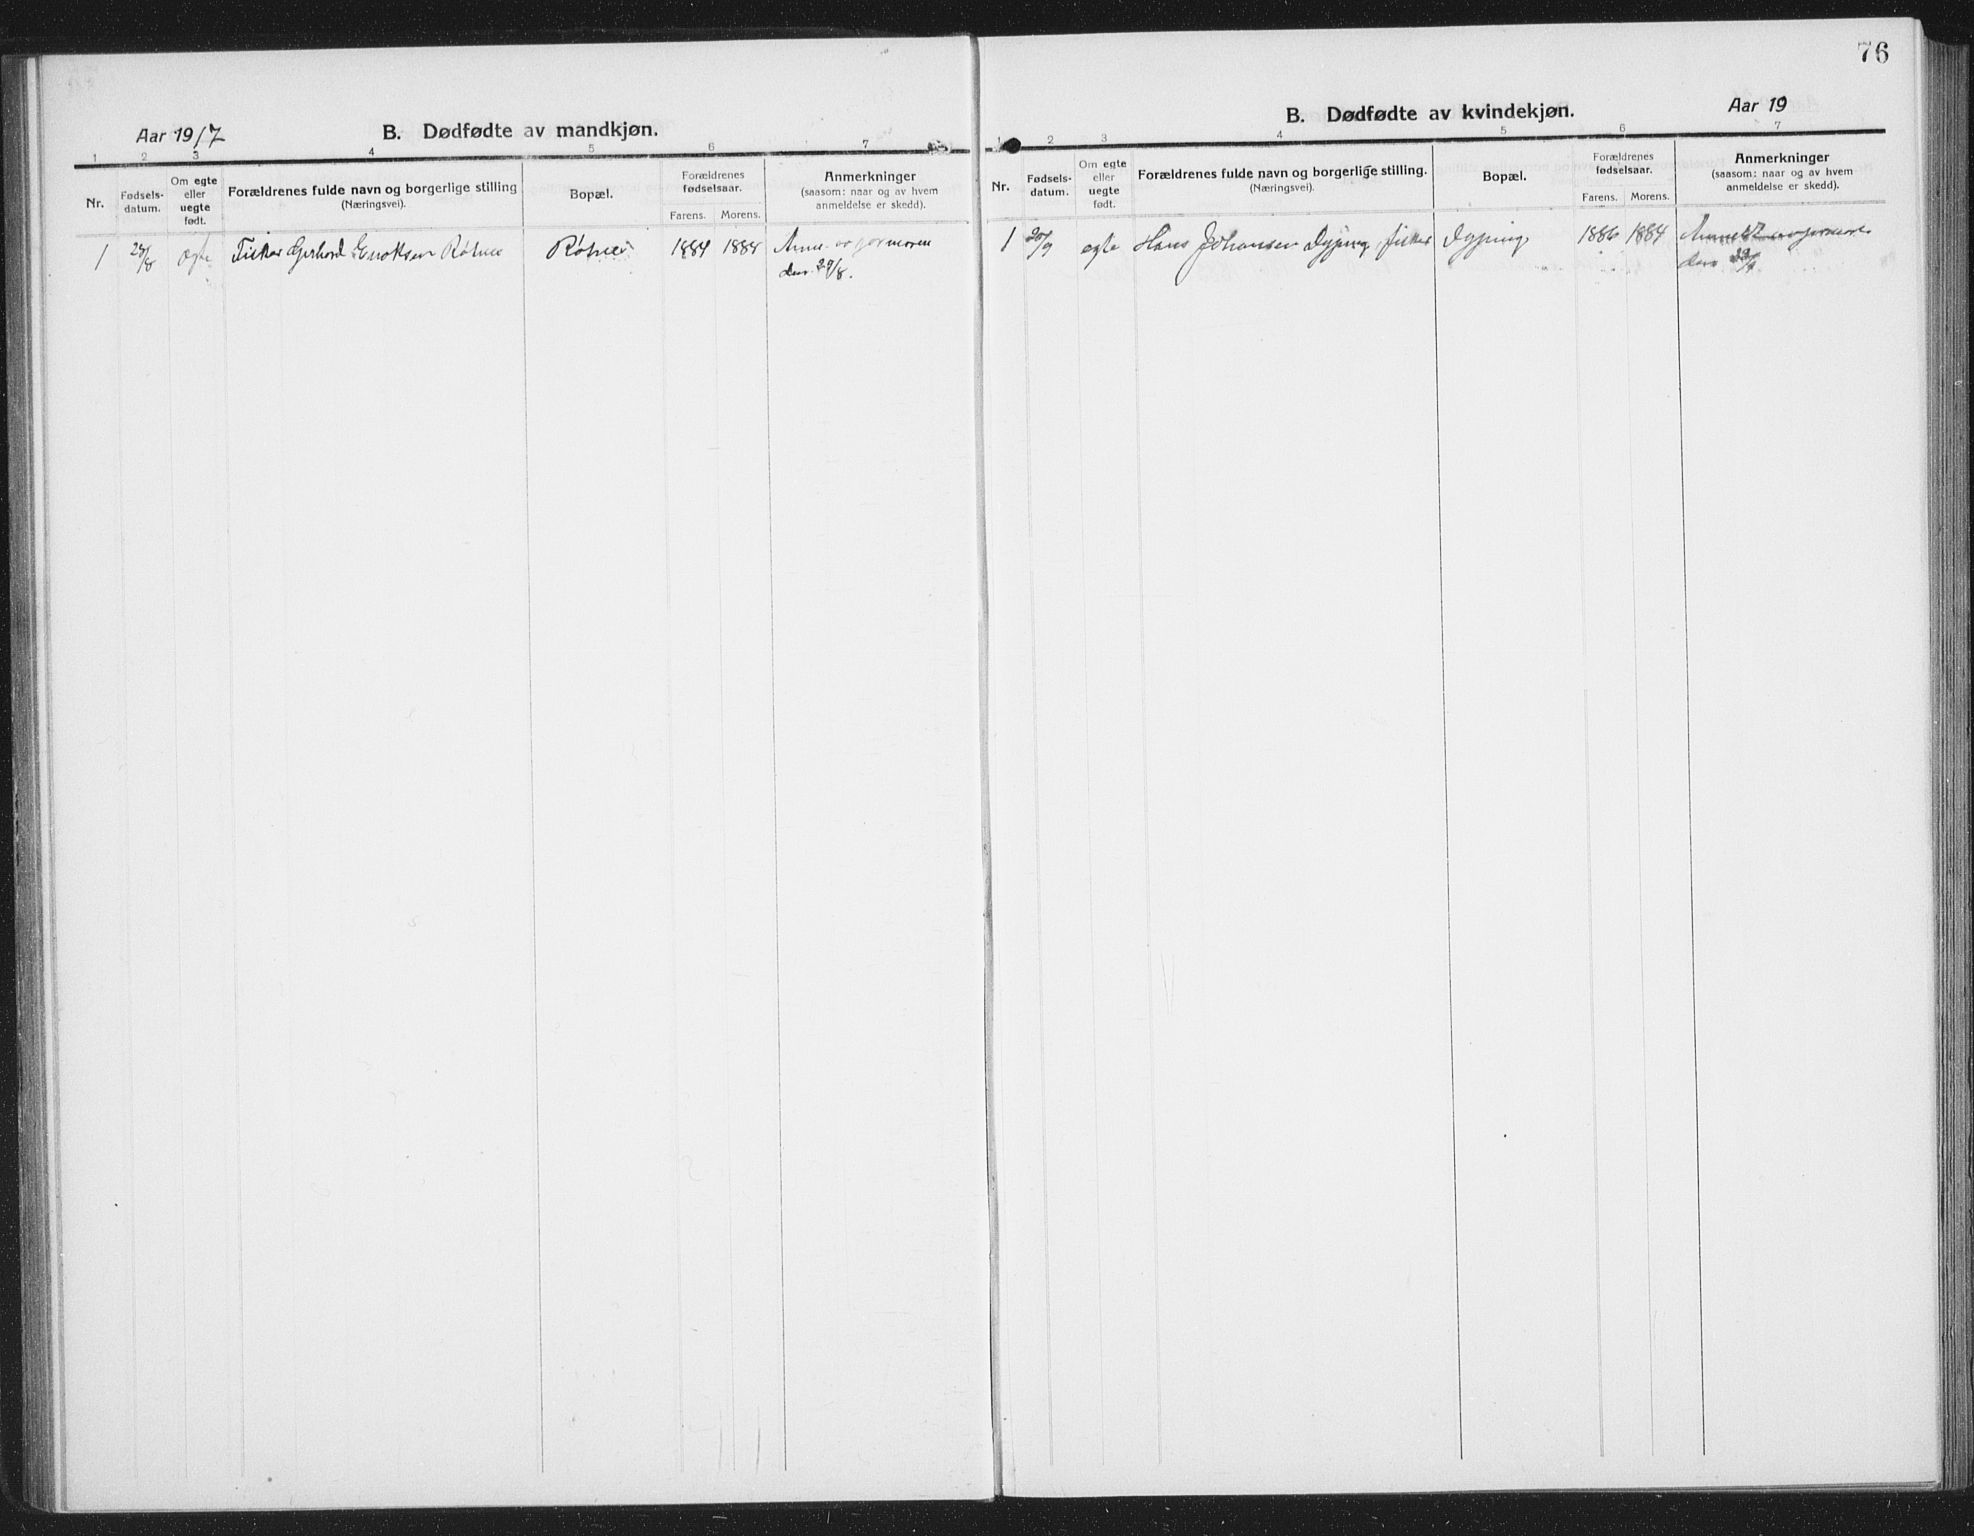 76
Aar 1917
B. Dødfødte av mandkjøn.
1 2 3 4 5 6 7
Nr.
Fødsels-
datum.
Om egte
eller
uegte
født.
Forældrenes fulde navn og borgerlige stilling
(Næringsvei).
Bopæl.
Forældrenes
fødselsaar.
Farens. Morens.
Anmerkninger
(saasom: naar og av hvem
anmeldelse er skedd).
1 egte Fisker Gerhard Enoksen Røtnes Røtnes 1884 1884 av jormoren
den 29/8.
B. Dødfødte av kvindekjøn.
Aar 19
1 2 3 4 5 6 7
Nr.
Fødsels-
datum.
Om egte
eller
uegte
født.
Forældrenes fulde navn og borgerlige stilling.
(Næringsvei).
Bopæl.
Forældrenes
fødselsaar.
Farens. Morens.
Anmerkninger
(saasom: naar og av hvem
anmeldelse er skedd).
1 20/9 egte Hans Johansen Dyping, fisker Dyping 1886 1884
den